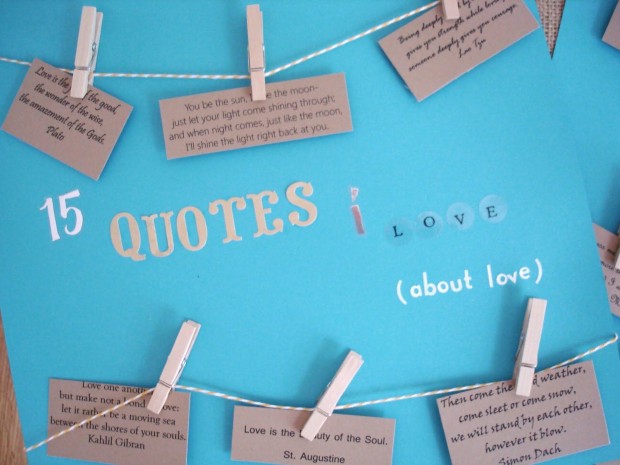 Love is the of the good,
the wonder of the wise,
the amazement of the Gods.
Plato
You be the sun, the moon-
just let your light come shining through;
and when night comes, just like the moon,
I'll shine the light right back at you.
Being deeply by
gives you strength while
someone deeply gives you courage.
Lao Tzu
15 QUOTES i LOVE
(about love)
Love one
but make not a of love:
let it be a moving sea
between the shores of your souls.
Kahlil Gibran
Love is the of the Soul.
St. Augustine
Then come the weather,
come sleet or come snow,
we will stand by each other,
however it blow.
Simon Dach